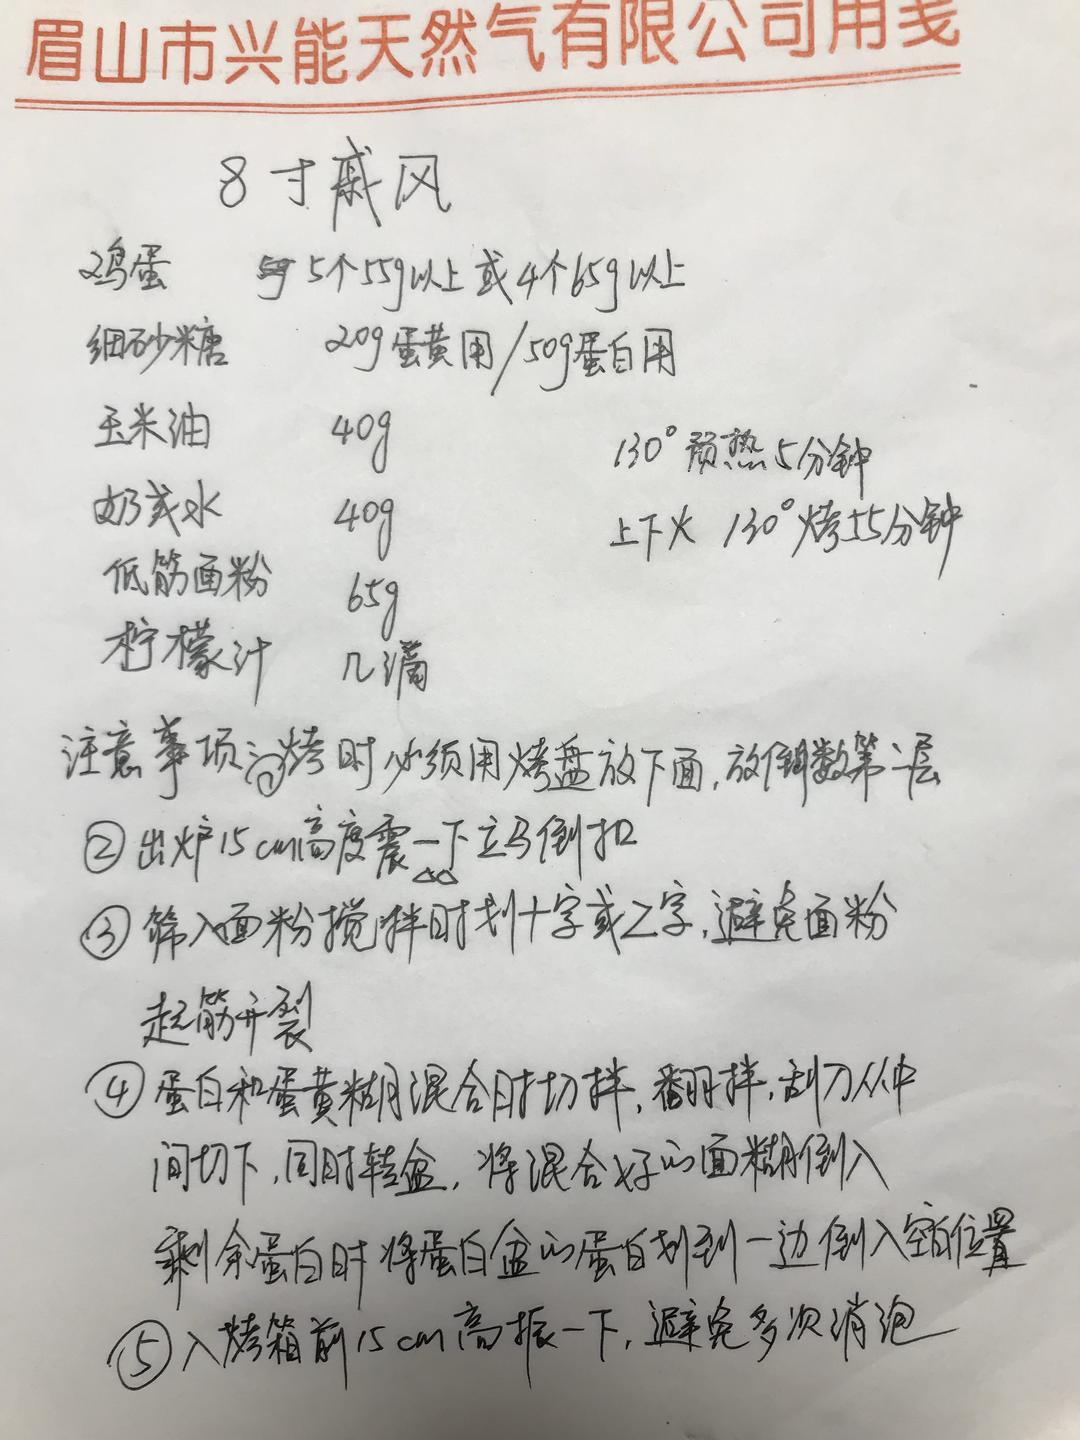 眉山市兴能天然气有限公司用笺
8寸戚风
鸡蛋 5个55g以上或4个65g以上
细砂糖 20g蛋黄用/50g蛋白用
玉米油 40g
130°预热5分钟
奶或水 40g
上下火 130°烤55分钟
低筋面粉 65g
柠檬汁 几滴
注意事项:①烤时必须用烤盘放下面,放倒数第二层
②出炉15cm高度震一下立马倒扣
③筛入面粉搅拌时划十字或Z字,避免面粉
起筋开裂
④蛋白和蛋黄糊混合时切拌,翻拌,刮刀从中
间切下,同时转盆,将混合好的面糊倒入
剩余蛋白时将蛋白盆的蛋白划到一边倒入空白位置
⑤入烤箱前15cm高振一下,避免多次消泡